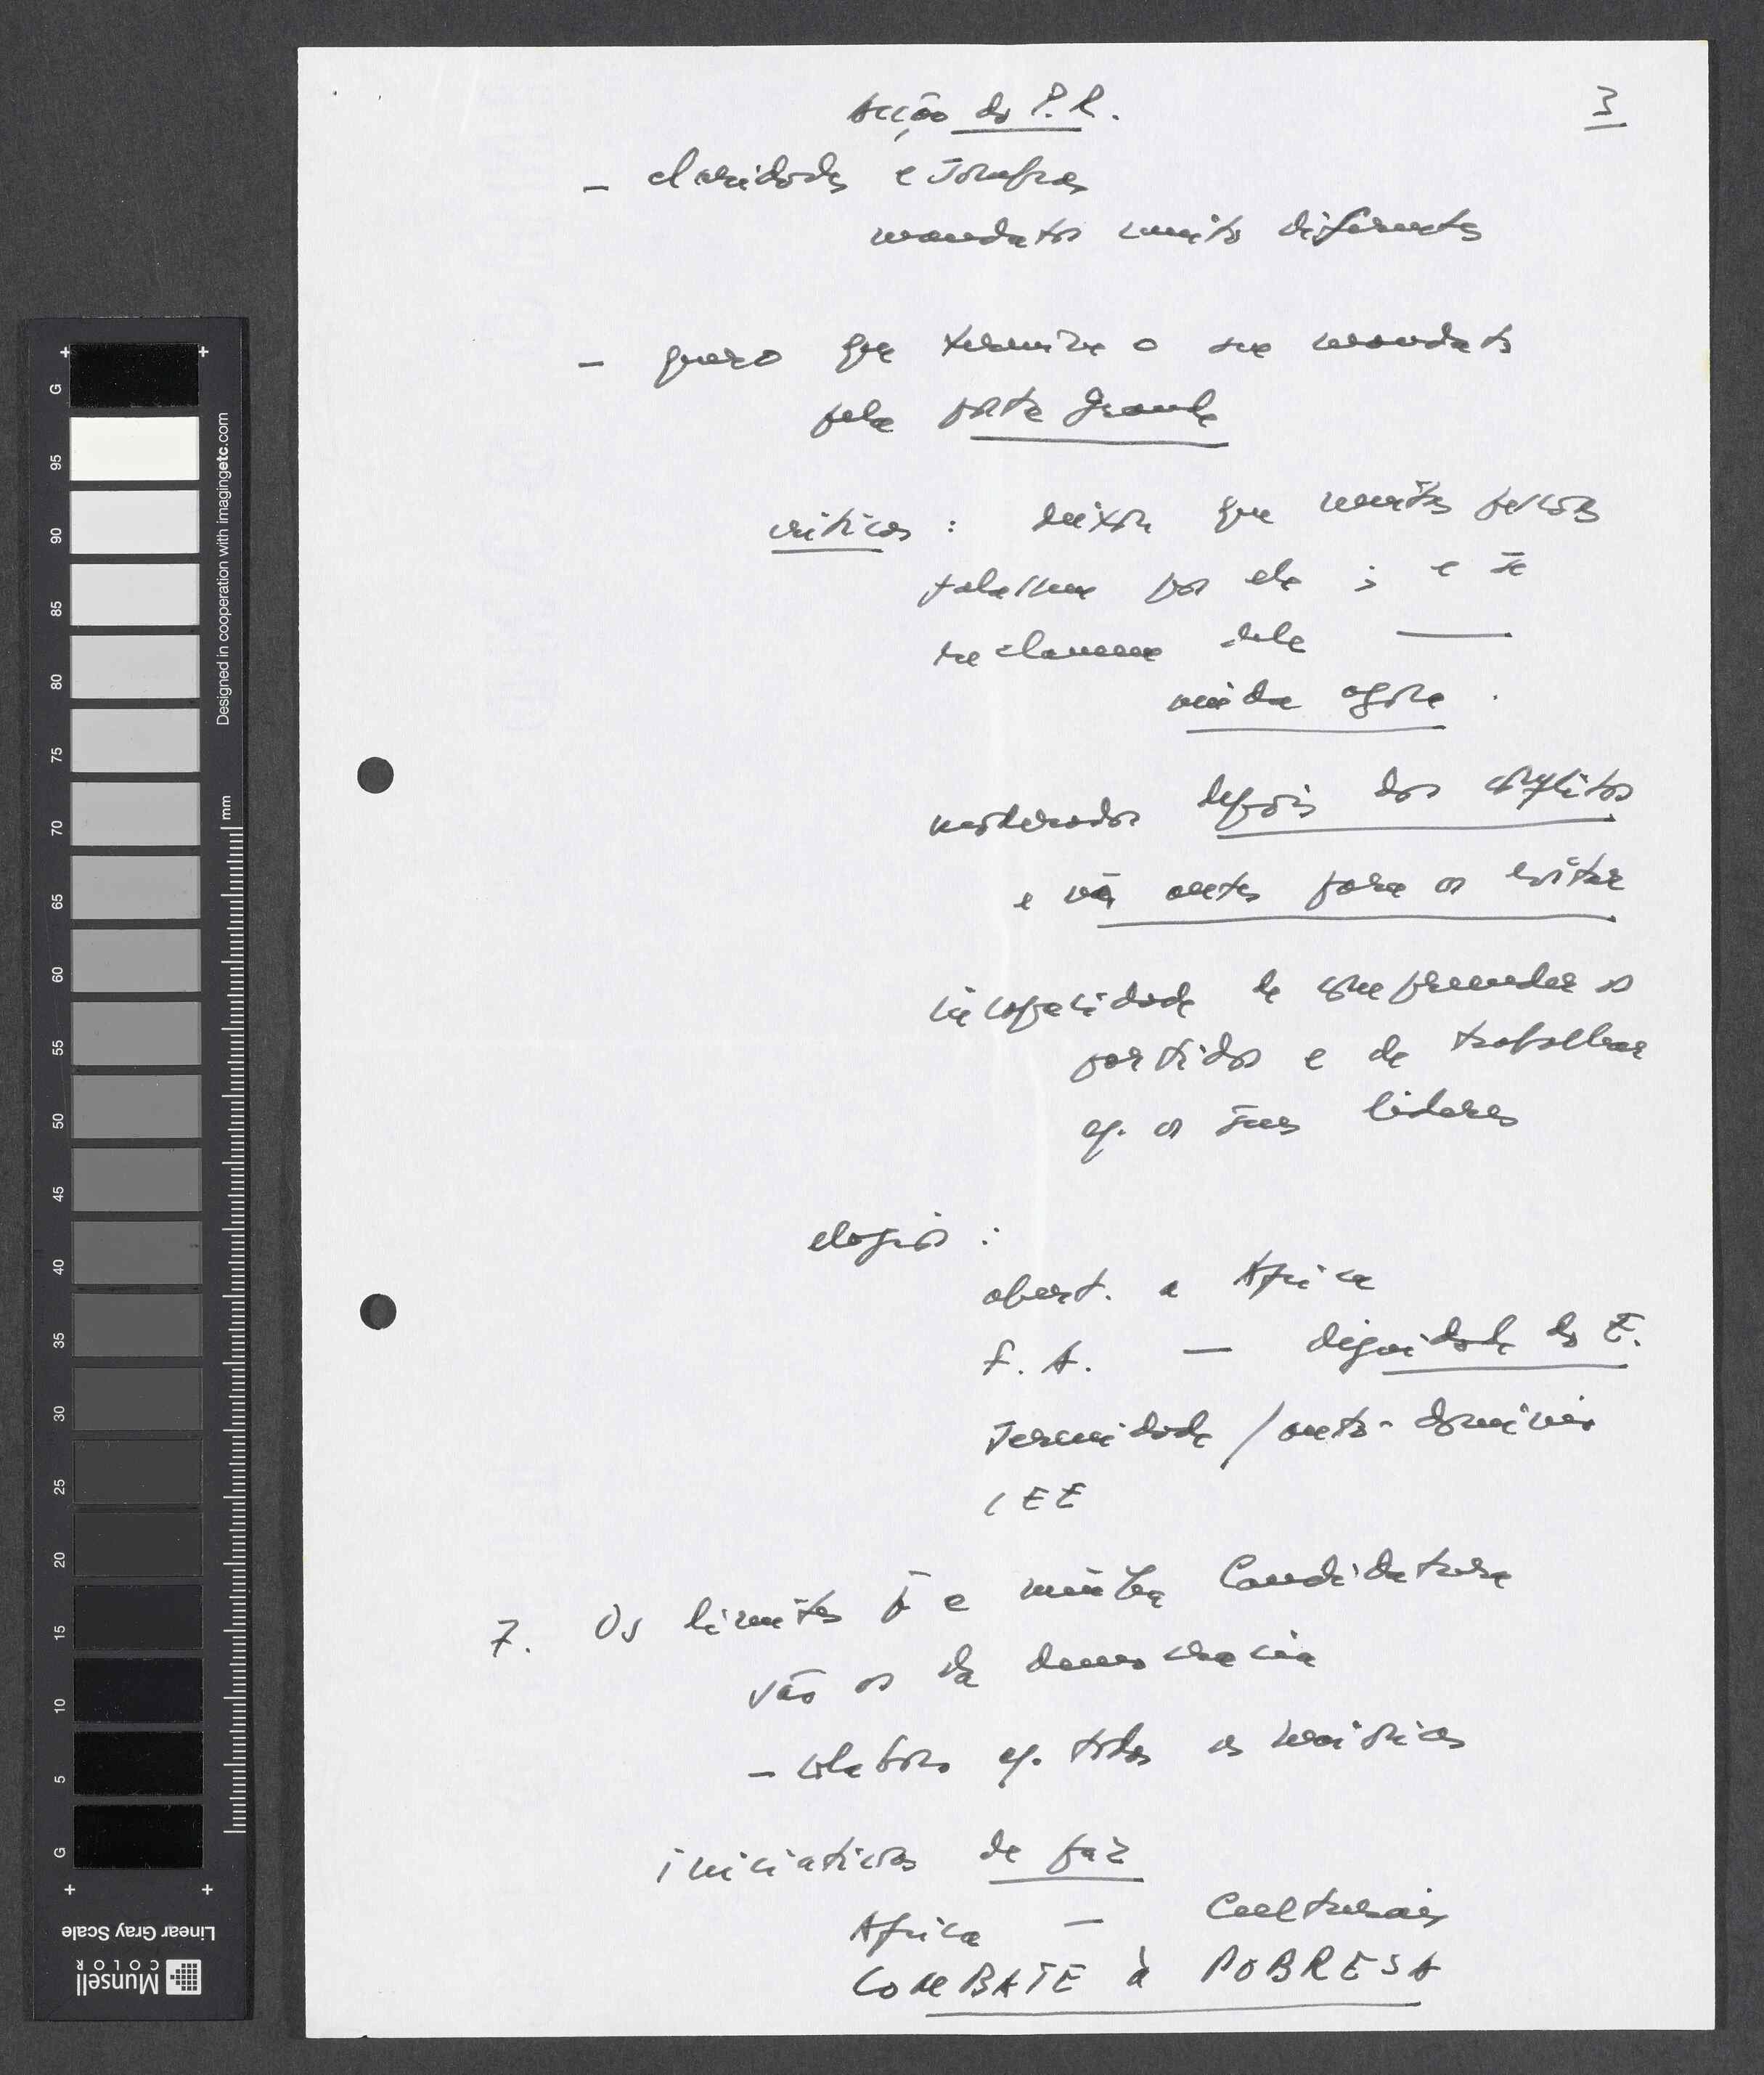 Acção do P.R.
3
- claridades e sombras
mandatos muito diferentes
- quero que termine o seu mandato
pela porta grande
críticas : deixou que muitas pessoas
falassem por ele ; e se
reclamem dele —
ainda agora .
moderador depois dos conflitos
e não antes para os evitar
incapacidade de compreender os
partidos e de trabalhar
c/. os seus líderes
elogios :
abert. a Africa
F. A. — dignidade do E.
serenidade / auto-domínio
CEE
7. Os limites p a minha Candidatura
são os da democracia
- c/. todos os
iniciativas de paz
Africa — Culturais
COMBATE à POBRESA
G
95
90
85
80
75
70
65
60
55
50
45
40
35
30
25
20
15
10
5
G
Designed in cooperation with imagingetc.com
mm
Linear Gray Scale
Munsell
COLOR